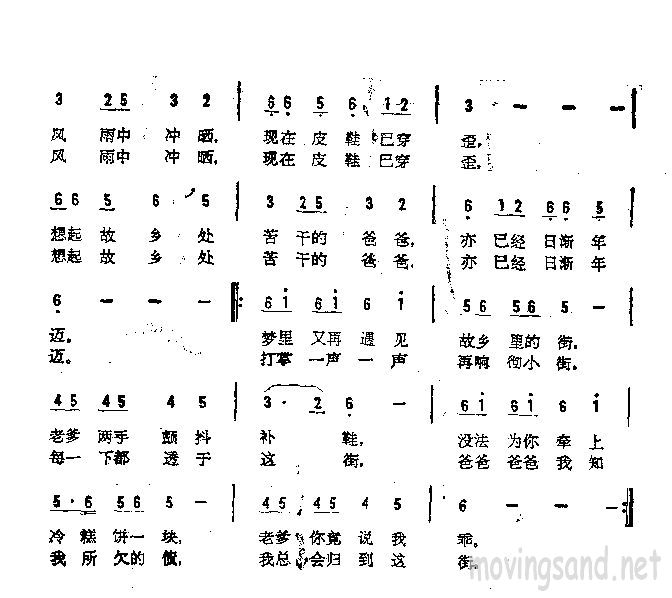 3 25 3 2 | 66 5 6 12 | 3 - - - |
风 雨中 冲 晒, 现在 皮 鞋 已穿 歪,
风 雨中 冲 晒, 现在 皮 鞋 已穿 歪,
66 5 6 5 | 3 25 3 2 | 6 12 66 5 |
想起 故 乡 处 苦 干的 爸 爸, 亦 已经 日渐 年
想起 故 乡 处 苦 干的 爸 爸, 亦 已经 日渐 年
6 - - - :| 6i 6i 6 i | 56 56 5 - |
迈。 梦里 又再 遇 见 故乡 里的 街。
迈。 打掌 一声 一 声 再响 彻小 街。
45 45 4 5 | 3· 2 6 - | 6i 6i 6 i |
老爹 两手 颤 抖 补 鞋, 没法 为你 牵 上
每一 下都 透 于 这 街, 爸爸 爸爸 我 知
5·6 56 5 - | 245 45 4 5 | 6 - - - :|
冷 糕 饼一 块, 老爹 你竟 说 我 乖。
我 所 欠的 债, 我总 会归 到 这 街。
movingsand.net